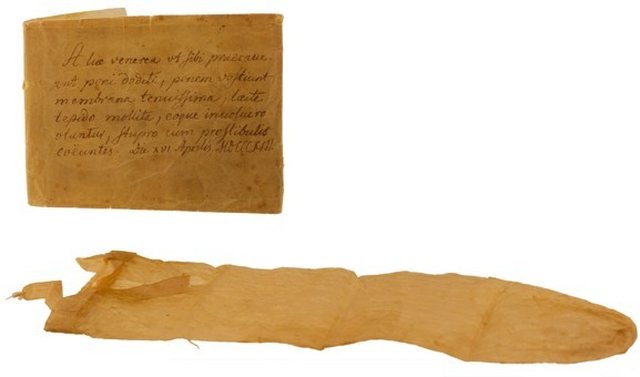 A lue venerea ut sibi praecave
ant peni dediti, penem vestiunt
membrana tenuissima, lacte
tepido mollita, eoque involucro
stupro cum prostibulis
coeuntes. Die XVI Aprilis